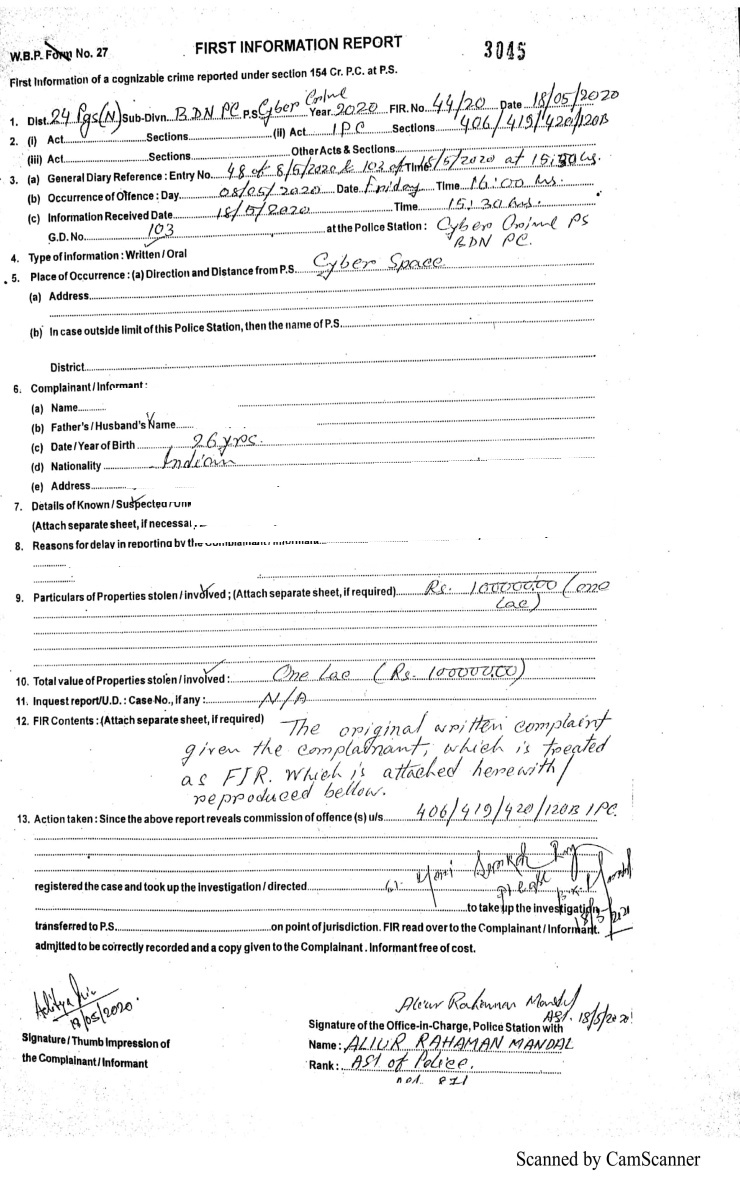 W.B.P. Form No. 27
FIRST INFORMATION REPORT
3045
First Information of a cognizable crime reported under section 154 Cr. P.C. at P.S.
1. Dist. 24 Pgs(N) Sub-Divn. BDN PC P.S. Cyber Crime Year 2020 FIR. No. 44/20 Date 18/05/2020
2. (i) Act Sections (ii) Act IPC Sections 406/419/420/120B
(iii) Act Sections Other Acts & Sections
3. (a) General Diary Reference : Entry No. 48 of 8/5/2020 & 103 of Time 18/5/2020 at 15:30 hrs.
(b) Occurrence of Offence : Day 08/05/2020 Date Friday Time 16:00 hrs.
(c) Information Received Date 18/5/2020 Time 15:30 hrs.
G.D. No. 103 at the Police Station : Cyber Crime PS
BDN PC.
4. Type of information : Written / Oral
5. Place of Occurrence : (a) Direction and Distance from P.S. Cyber Space
(a) Address
(b) In case outside limit of this Police Station, then the name of P.S.
District
6. Complainant / Informant :
(a) Name
(b) Father's / Husband's Name
(c) Date / Year of Birth 26 yrs.
(d) Nationality Indian
(e) Address
7. Details of Known / Suspected
(Attach separate sheet, if necessa
8. Reasons for delay in reporting by the Complainant / Informant
9. Particulars of Properties stolen / involved ; (Attach separate sheet, if required) Rs. 1000000.00 (one
lac)
10. Total value of Properties stolen / involved : One lac (Rs. 1000000.00)
11. Inquest report/U.D. : Case No., if any : N/A
12. FIR Contents : (Attach separate sheet, if required) The original written complaint
given the complainant, which is treated
as FIR. Which is attached herewith/
reproduced bellow.
13. Action taken : Since the above report reveals commission of offence (s) u/s 406/419/420/120B IPC.
registered the case and took up the investigation / directed
to take up the investigation
transferred to P.S. on point of jurisdiction. FIR read over to the Complainant / Informant.
admjtted to be correctly recorded and a copy given to the Complainant. Informant free of cost.
18/05/2020.
Aliur Rahaman Mandal
ASI. 18/5/2020
Signature / Thumb Impression of
the Complainant / Informant
Signature of the Office-in-Charge, Police Station with
Name : ALIUR RAHAMAN MANDAL
Rank : ASI of Police.
Scanned by CamScanner